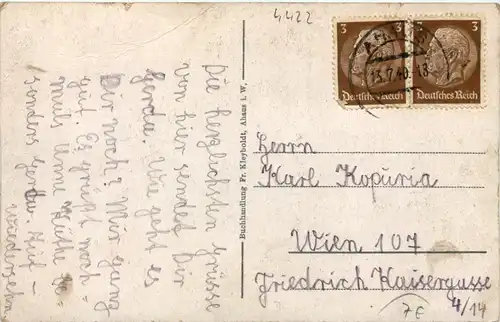 4422
3 3
AHAUS
13.7.40.-18
Deutsches Reich Deutsches Reich
Die herzlichsten Grüsse
von hier sendet Dir
Gerda. Wie geht es
Dir noch? Mir ganz
gut. Es grüßt noch-
mals Anne Käthe be-
sonders Gerda. Auf-
wiedersehn
Buchhandlung Fr. Kleyboldt, Ahaus i. W.
Herrn
Karl Kopuria
Wien 107
Friedrich Kaisergasse
4/14
7E